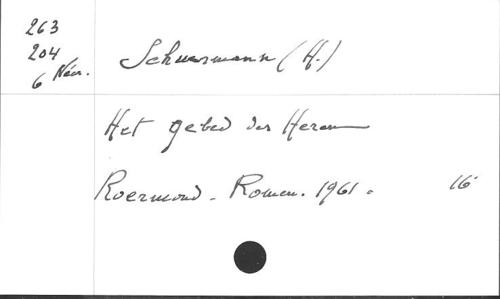 263
204
6 Néer.
Schuermann (H.)
Het gebed des Heren
Roermond - Romen. 1961. 16°